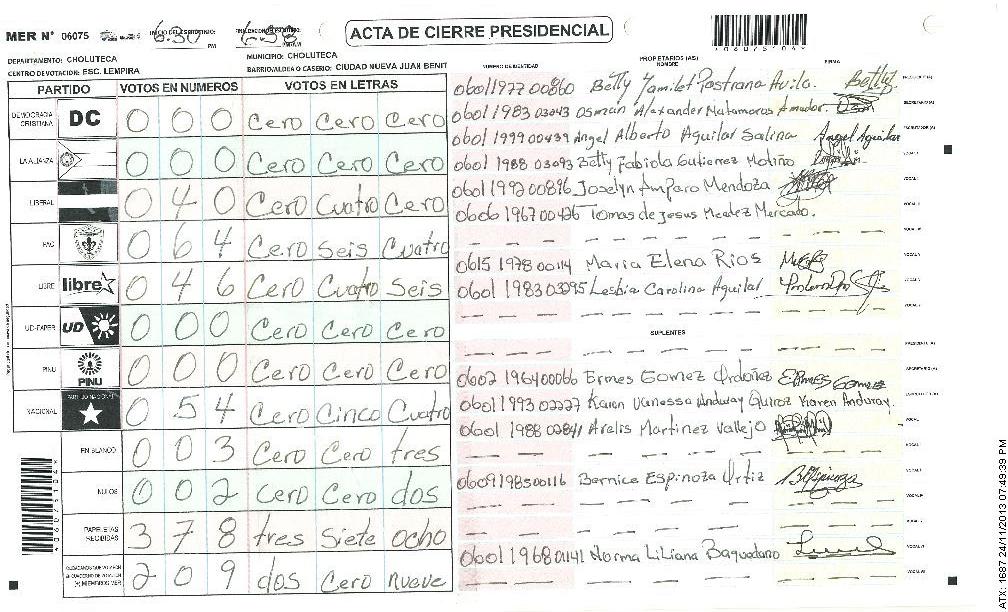 MER N° 06075
6:30 PM
6:38
ACTA DE CIERRE PRESIDENCIAL
DEPARTAMENTO: CHOLUTECA
MUNICIPIO: CHOLUTECA
CENTRO DE VOTACION: ESC. LEMPIRA
BARRIO/ALDEA O CASERIO: CIUDAD NUEVA JUAN BENIT
PARTIDO VOTOS EN NUMEROS VOTOS EN LETRAS
DEMOCRACIA CRISTIANA DC 0 0 0 Cero Cero Cero
LA ALIANZA 0 0 0 Cero Cero Cero
LIBERAL 0 4 0 Cero Cuatro Cero
PAC 0 6 4 Cero Seis Cuatro
LIBRE libre 0 4 6 Cero Cuatro Seis
UD-FAPER UD 0 0 0 Cero Cero Cero
PINU PINU 0 0 0 Cero Cero Cero
NACIONAL PARTIDO NACIONAL 0 5 4 Cero Cinco Cuatro
EN BLANCO 0 0 3 Cero Cero tres
NULOS 0 0 2 Cero Cero dos
PAPELETAS RECIBIDAS 3 7 8 tres Siete ocho
2 0 9 dos Cero nueve
PROPIETARIOS (AS)
NUMERO DE IDENTIDAD NOMBRE FIRMA
0601 1977 00860 Betty Yamilet Pastrana Avila. Betty
0601 1983 03043 Osman Alexander Matamoros Amador.
0601 1999 00439 Angel Alberto Aguilar Salina Angel Aguilar
0601 1988 03093 Betty Fabiola Gutierrez Motiño
0601 1992 00896 Joselyn Amparo Mendoza
0606 1967 00426 Tomas de Jesus Mendez Mercado.
0615 1978 00114 Maria Elena Rios
0601 1983 03295 Lesbia Carolina Aguilar
SUPLENTES
0602 1964 00066 Ermes Gomez Ordoñez Ermes Gomez
0601 1993 02227 Karen Vanessa Anduray Quiroz Karen Anduray.
0601 1988 02841 Arelis Martinez Vallejo
0609 1985 00116 Bernice Espinoza Ortiz BEspinoza
0601 1968 01141 Norma Liliana Baquedano
ATX: 1687 24/11/2013 07:49:39 PM